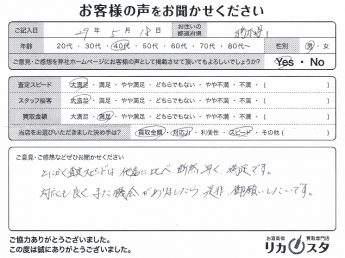 お客様の声をお聞かせください
ご記入日 29年 5月 18日 お住いの都道府県 栃木県
年齢 20代・30代・40代・50代・60代・70代・80代〜 性別 男・女
ご意見・ご感想を弊社ホームページにお客様の声として掲載させて頂いてもよろしいでしょうか? Yes・No
査定スピード 大満足・満足・やや満足・どちらでもない・やや不満・不満・( )
スタッフ接客 大満足・満足・やや満足・どちらでもない・やや不満・不満・( )
買取金額 大満足・満足・やや満足・どちらでもない・やや不満・不満・( )
当店をお選びいただきました決め手は? 買取金額・対応力・利便性・スピード・その他( )
ご意見・ご感想などぜひお聞かせください
とにかく査定スピードは他店に比べ断然早く、満足です。
対応も良くまた機会がありましたら是非御願いしたいです。
ご協力ありがとうございました。
この度は誠にありがとうございました。
お酒高価買取専門店
リカスタ